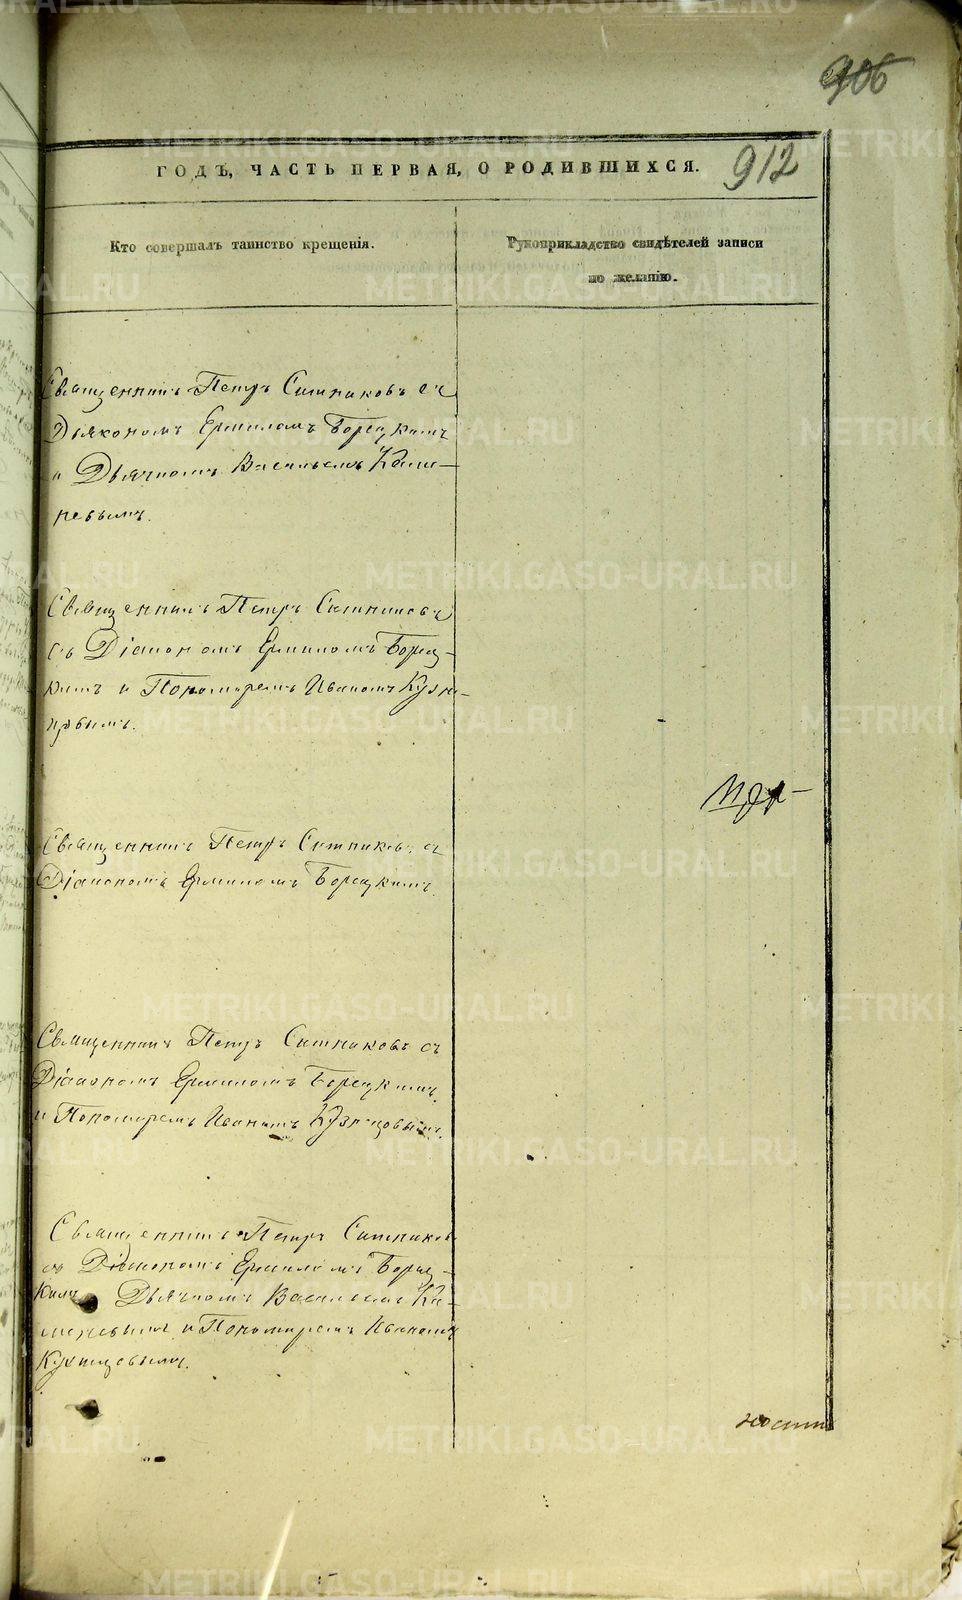 906
ГОДЪ, ЧАСТЬ ПЕРВАЯ, О РОДИВШИХСЯ.
912
Кто совершалъ таинство крещенія.
Рукоприкладство свидѣтелей записи
по желанію.
Священникъ Петръ Ситниковъ съ
Дьякономъ Ермиломъ Борецкимъ
и Дьячкомъ Васильемъ Каме-
невымъ.
Священникъ Петръ Ситниковъ
съ Діакономъ Ермиломъ Борец-
кимъ и Пономаремъ Иваномъ Кузне-
цовымъ.
Священникъ Петръ Ситниковъ съ
Діакономъ Ермиломъ Борецкимъ.
Священникъ Петръ Ситниковъ съ
Діакономъ Ермиломъ Борецкимъ
и Пономаремъ Иваномъ Кузнецовымъ.
Священникъ Петръ Ситниковъ
съ Діакономъ Ермиломъ Борец-
кимъ Дьячкомъ Васильемъ Ка-
меневымъ и Пономаремъ Иваномъ
Кузнецовымъ.
METRIKI.GASO-URAL.RU